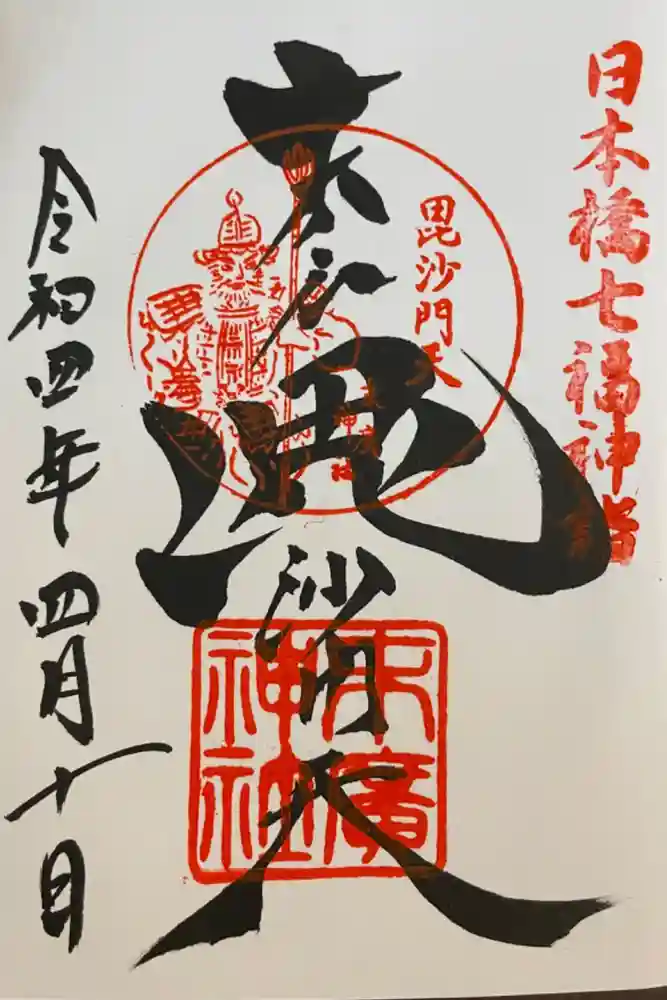 日本橋七福神詣
毘沙門天
毘沙門天
末廣
神社
令和四年四月十日